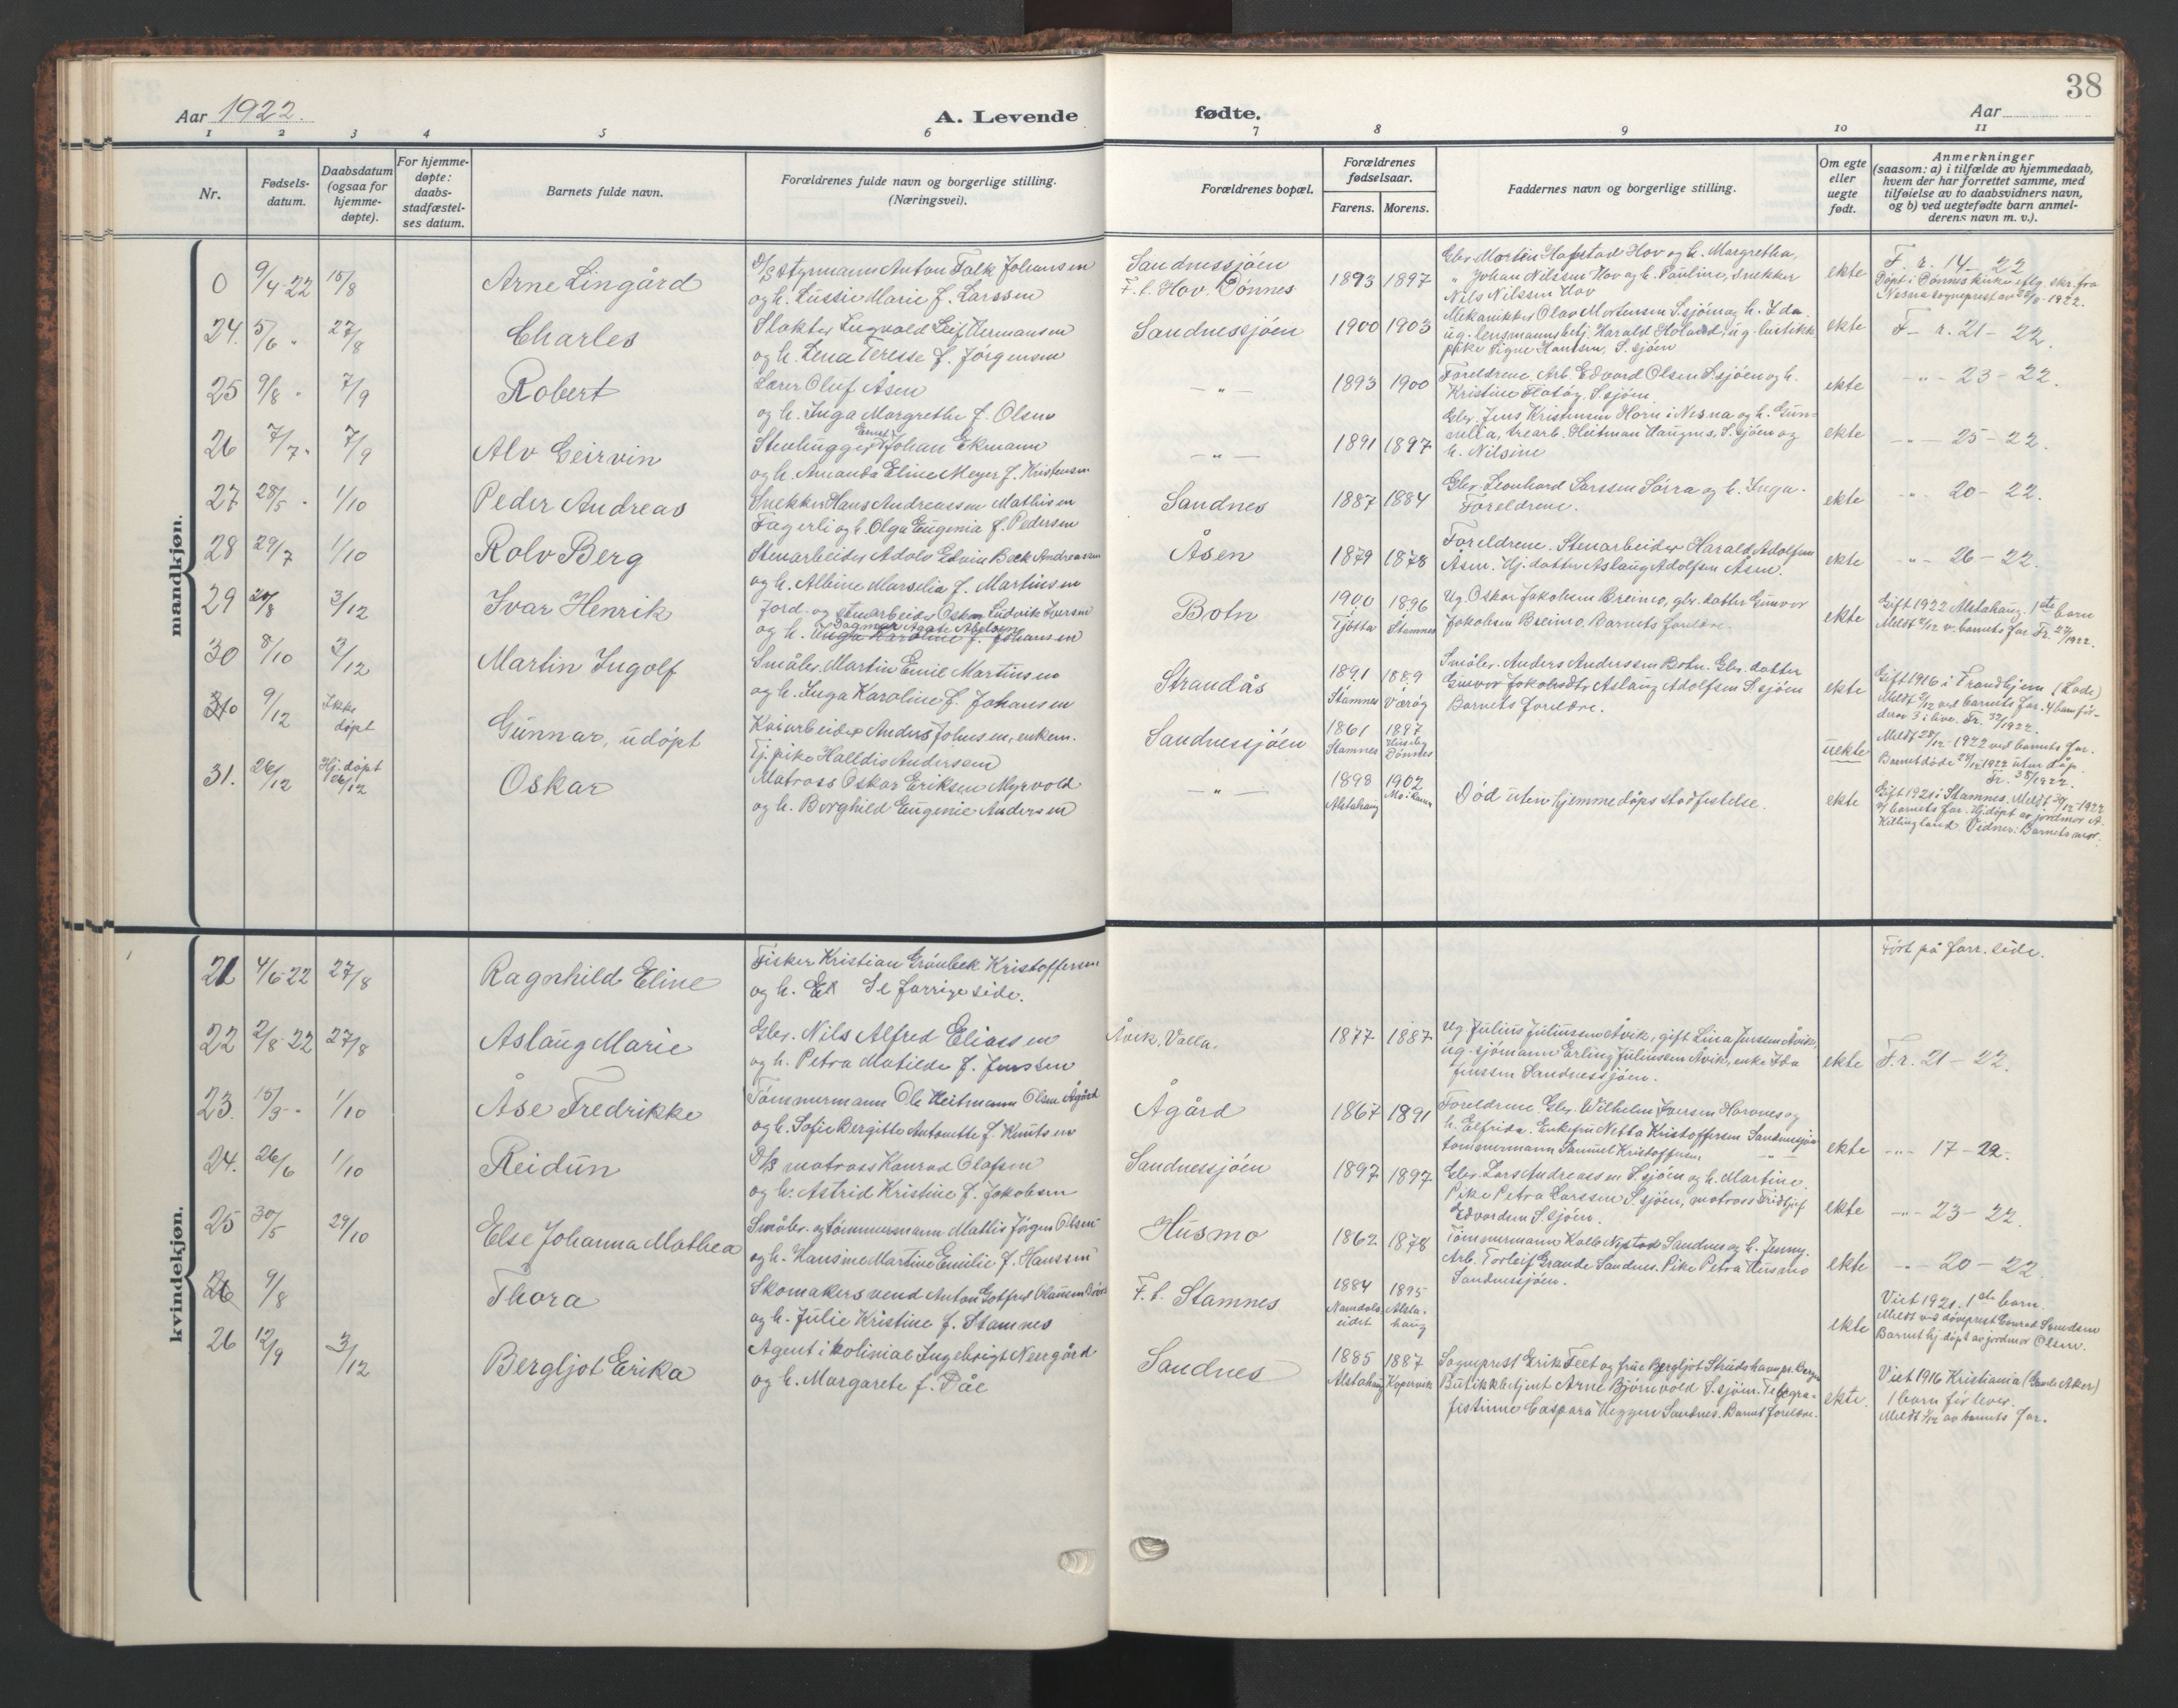 38
Aar 1922.
A. Levende
fødte.
Aar
1 2 3 4 5 6 7 8 9 10 11
Nr.
Fødsels-
datum.
Daabsdatum
(ogsaa for
hjemme-
døpte).
For hjemme-
døpte:
daabs-
stadfæstel-
ses datum.
Barnets fulde navn.
Forældrenes fulde navn og borgerlige stilling.
(Næringsvei).
Forældrenes bopæl.
Forældrenes
fødselsaar.
Farens. Morens.
Faddernes navn og borgerlige stilling.
Om egte
eller
uegte
født.
Anmerkninger
(saasom: a) i tilfælde av hjemmedaab,
hvem der har forrettet samme, med
tilføielse av to daabsvidners navn,
og b) ved uegtefødte barn anmel-
derens navn m. v.).
mandkjøn.
0 9/4-22 15/8 Arne Lingård
D/S styrmann Anton Falk Johansen
og h. Lussie Marie f. Larssen
Sandnessjöen
F. t. Hov, Dönnes
1893 1897
Gbr. Morten Hafstad Hov og h. Margretha,
" Johan Nilsen Hov og h. Pauline, snekker
Nils Nilssen Hov
ekte
F. r. 14 - 22
Döpt i Dönnes kirke iflg. skr. fra
Nesna sogneprest av
24. 5/6 " 27/8 Charles
Slakter Ingvald Leif Hermansen
og h. Lena Teresse f. Jörgensen
Sandnessjöen
1900 1903
Mekanikker Olav Mortensen S.sjöen og h. Ida
ug. lensmannsbetj. Harald ug. butikk
pike Signe Hansen, S.sjöen
ekte
F- r. 21 - 22.
25 9/8 " 7/9 Robert
Lærer Oluf Åsen
og h. Inga Margrethe f. Olsen
- " -
1893 1900
Foreldrene, Arb. Edvard Olsen S.sjöen og h.
Kristine Flotöy, S.sjöen
ekte
- " - 23 - 22.
26 7/7 " 7/9 Alv Geirvin
Stenhugger Ernst Johan Ekmann
og h. Amanda Eline Meyer f. Kristensen
- " -
1891 1897
Gbr. Jens Kristensen Horn i Nesna og h. Gun-
nilla, trearb. Heitman Haugnes, S.sjöen og
h. Nilsine
ekte
- " - 25 - 22.
27 28/5 " 1/10 Peder Andreas
Snekker Hans Andreassen Mathisen
Fagerli og h. Olga Eugenia f. Pedersen
Sandnes
1887 1884
Gbr. Leonhard Larssen Sörra og h. Inga.
Foreldrene.
ekte
" - 20 - 22.
28 29/7 1/10 Rolv Berg
Stenarbeider Adolv Edvin Bæck Andreassen
og h. Albine Marselia f. Martinsen
Åsen
1879 1878
Foreldrene. Stenarbeider Harald Adolfsen
Åsen. Hj. datter Aslaug Adolfsen Åsen.
ekte
" - 26 - 22.
29 3/12 Ivar Henrik
Jord- og stenarbeider Oskar Ludvik Iversen
Dagmar Agate Abelsen
og h. Inga Karoline f. Johansen
Botn
1900 1896
Tjötta Stamnes
Ug. Oskar Jakobsen Breimo, gbr. datter Gunvor
Jakobsen Breimo. Barnets foreldre.
ekte
Gift 1922 Alstahaug. 1ste barn
Meldt 2/12 v. barnets far. Fr. 27/1922.
30 8/10 3/12 Martin Ingolf
Småbr. Martin Emil Martinsen
og h. Inga Karoline f. Johansen
Strandås
1891 1889
Stamnes Væröy
Småbr. Anders Anderssen Botn. Gbr. datter
Gunvor Aslaug Adolfsen S.sjöen
Barnets foreldre.
ekte
Gift 1916 i Trondhjem (Lade)
Meldt 2/12 ved barnets far. 4 barn för-
derav 3 i live. Fr. 32/1922.
30 9/12 Ikke
döpt Gunnar, udöpt
Kaiarbeider Anders Johnsen, enkem.
Tj. pike Halldis Andersen
Sandnessjöen
1861 1897
Stamnes Husby
Dönnes
uekte
Meldt 28/12-1922 ved barnets far.
Barnet döde 28/12 1922 uten dåp.
Fr. 38/1922.
31. 26/12 Hj. döpt
26/12 Oskar
Matross Oskar Eriksen Myrvold
og h. Borghild Eugenie Andersen
- " -
1898 1902
Alstahaug Mo i Rana
Död uten hjemmedåps stadfestelse.
ekte
Gift 1921 i Stamnes. Meldt 29/12-1922
v/ barnets far. Hj. döpt av jordmor A.
Killingland. Vidner: Barnets mor.
kvindekjøn.
21 4/6-22 27/8 Ragnhild Eline
Fisker Kristian Grönbek Kristoffersen
og h. El Se forrige side.
Fört på forr. side.
22 2/8-22 27/8 Aslaug Marie
Gbr. Nils Alfred Eliassen
og h. Petra Matilde f. Jenssen
Åvik, Valla.
1877 1887
Ug. Julius Juliussen Åvik, gift Lina Jenssen Åvik,
ug. sjömann Erling Juliussen Åvik, enke Ida
Jenssen Sandnessjöen.
ekte
F. r. 21 - 22.
23. 15/3 " 1/10 Åse Fredrikke
Tömmermann Ole Heitmann Olsen Ågård
og h. Sofie Bergitte Antonette f. Knutsen
Ågård
1867 1891
Foreldrene. Gbr. Wilhelm Iversen Horvnes og
h. Elfrida. Enkefru Netta Kristoffersen Sandnessjöen
tömmermann Samuel Kristoffersen - " -
ekte
- " - 17 - 22.
24. 26/6 1/10 Reidun
D/S matross Konrad Olafsen
og h. Astrid Kristine f. Jakobsen
Sandnessjöen
1897 1897
Gbr. Lars Andreassen S.sjöen og h. Martine.
Pike Petra Larssen S.sjöen, matross Fridtjof
Edvardsen S.sjöen.
ekte
- " - 23 - 22.
25 30/5 29/10 Else Johanna Mathea
Småbr. og tömmermann Mathis Jörgen Olsen
og h. Hansine Martine Emilie f. Hanssen
Husmo
1862 1878
Tömmermann Kolb. Nystad Sandnes og h. Jenny.
Arb. Torleif Grande Sandnes. Pike Petra Husmo
Sandnessjöen.
ekte
- " - 20 - 22.
26 9/8 Thora
Skomakersvend Anton Gotfred Olaussen
og h. Julie Kristine f. Stamnes
F. t. Stamnes
1884 1895
Namdals- Alsta-
eidet haug
ekte
Viet 1921. 1ste barn.
Meldt ved döveprest Conrad Svendsen
Barnet hj. döpt av jordmor Olsen.
26 12/9 3/12 Bergljot Erika
Agent i kolonial Ingebrigt Neergård
og h. Margarete f. Påe
Sandnes
1885 1887
Alstahaug Kopervik
Sogneprest Erik Feet og frue Bergljot Strudshavn pr. Bergen
Butikkbetjent Arne Björnvold S.sjöen. Telegra-
fistinne Caspara Heggen Sandnes. Barnets foreldre.
ekte.
Viet 1916 Kristiania (Gamle Aker)
1 barn för lever.
Meldt 1/12 av barnets far.